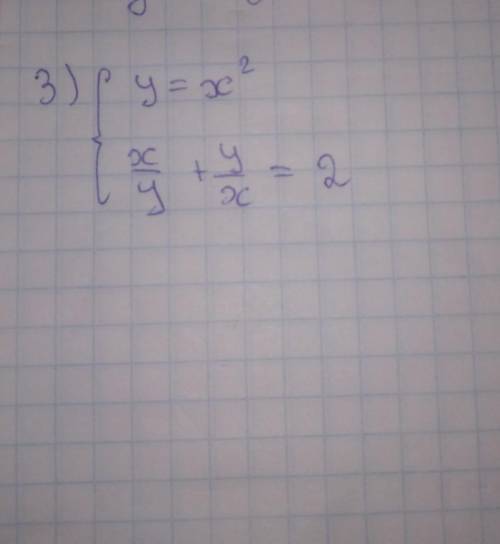 3) { y = x²
x/y + y/x = 2